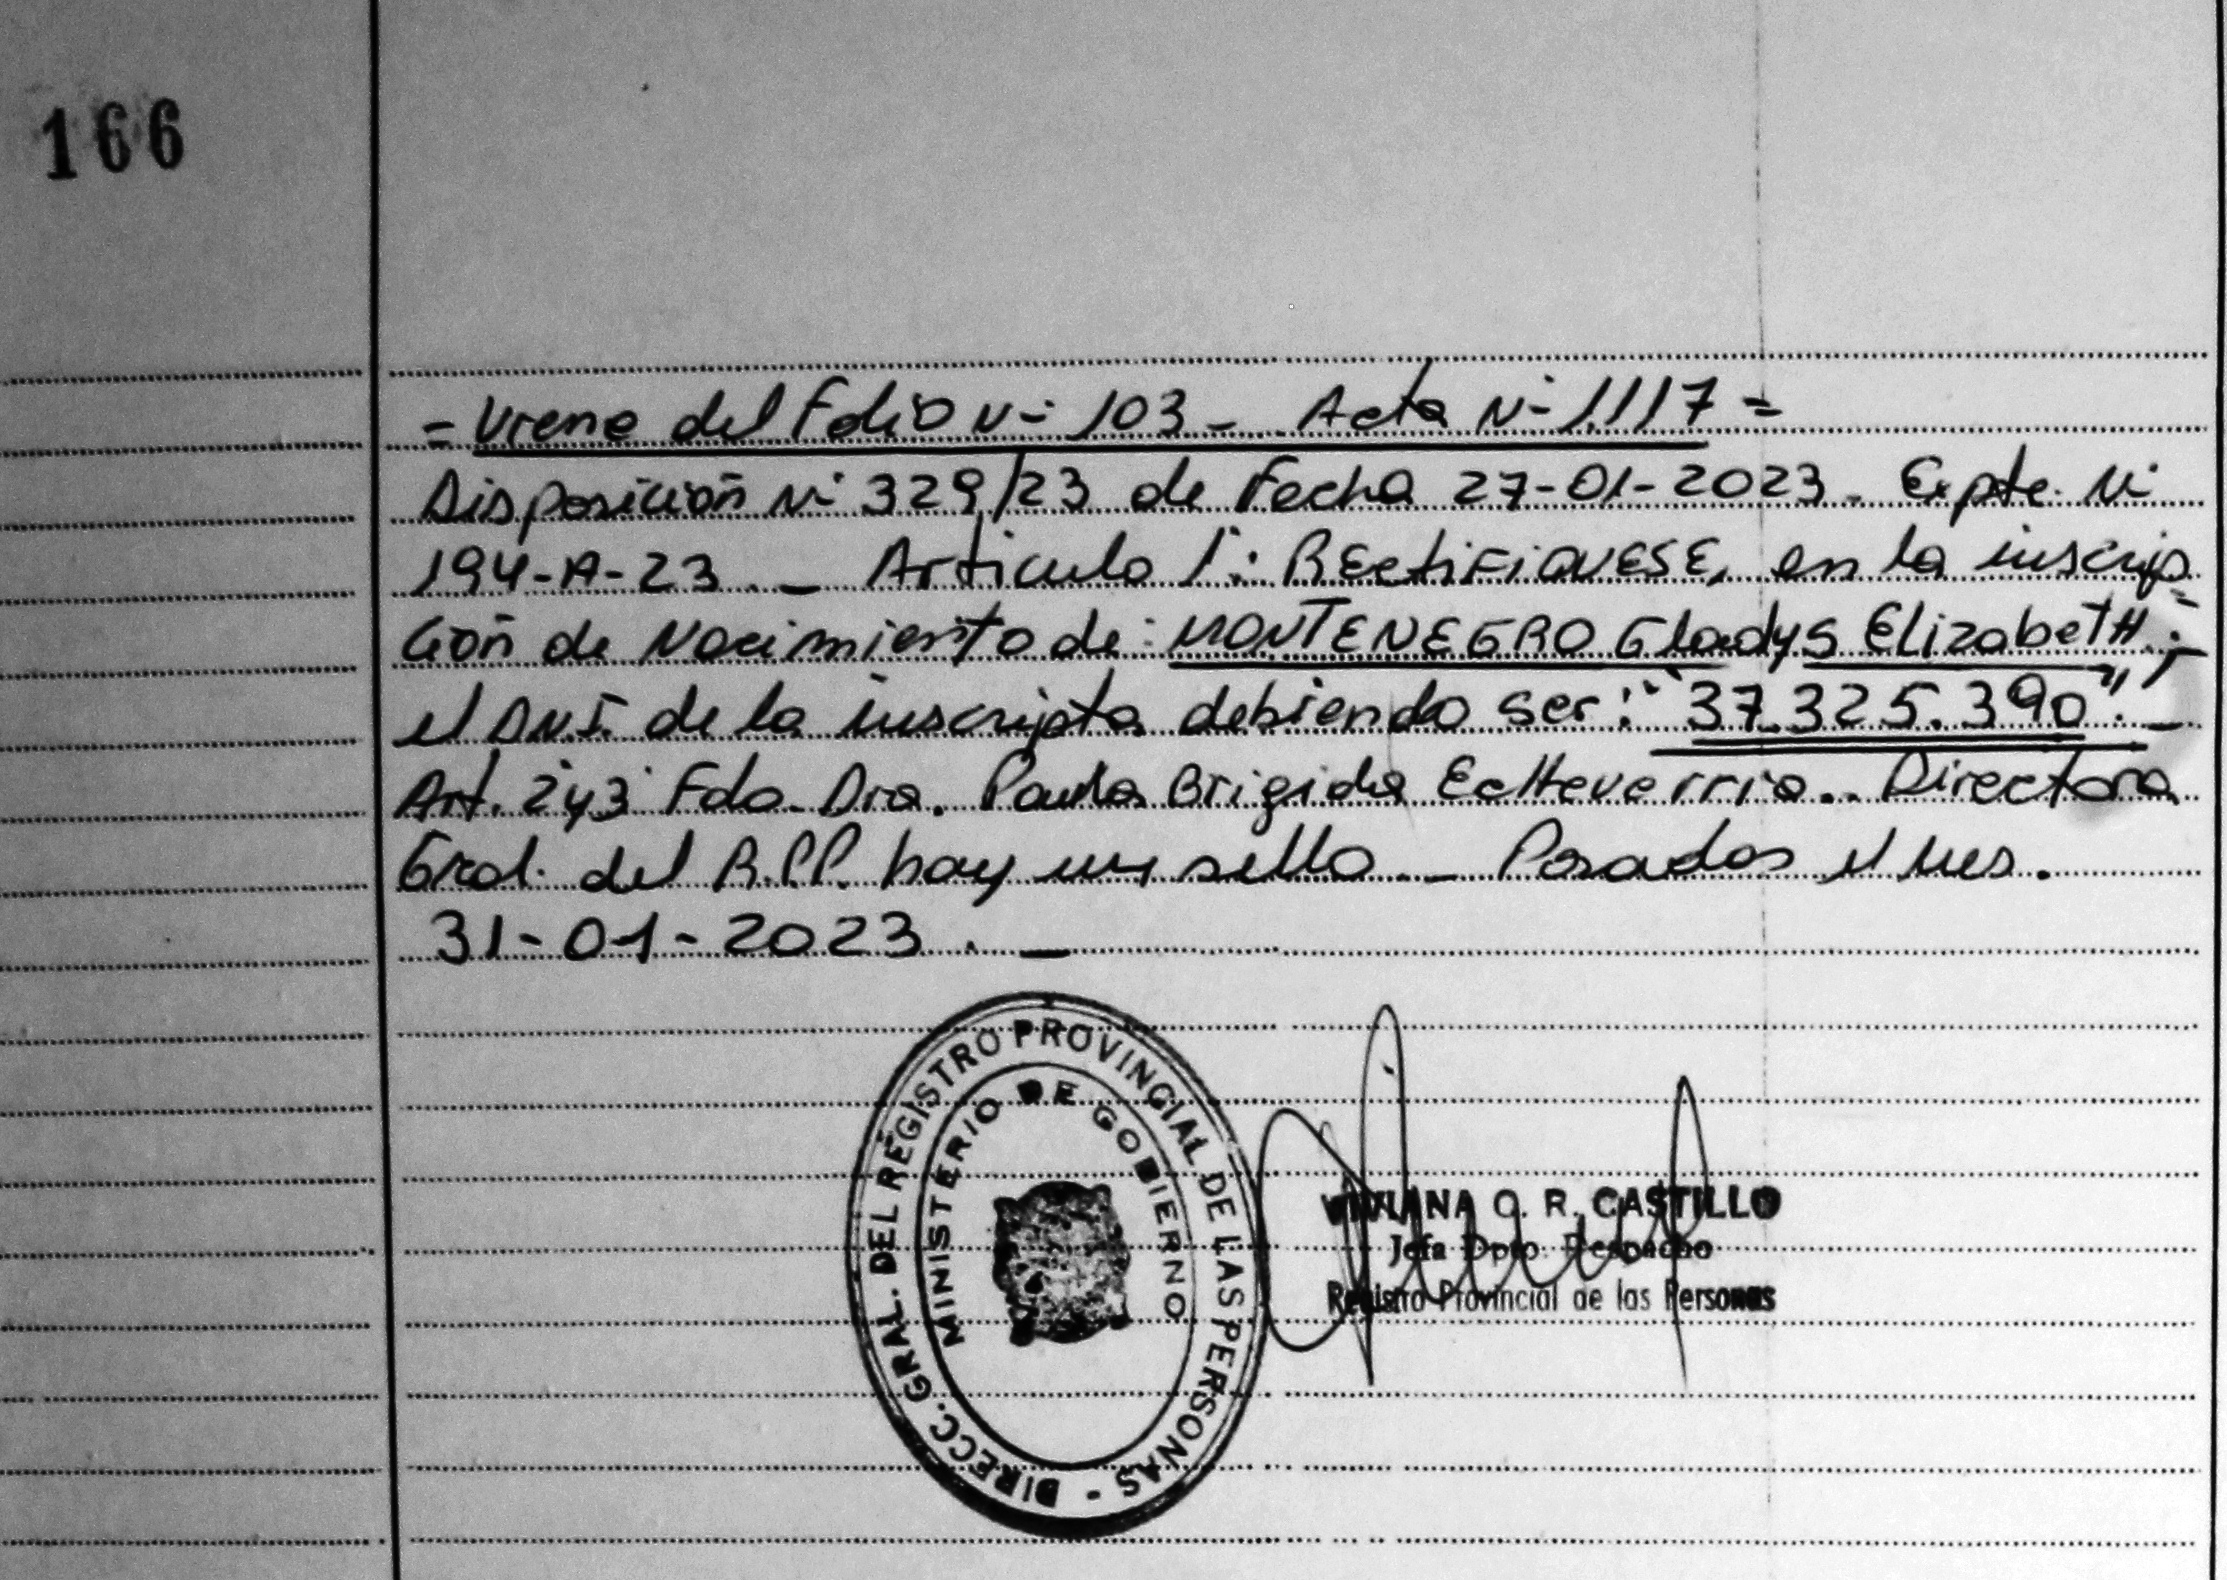 166
- Viene del Folio Nº 103 - Acta Nº 1.117 =
Disposición Nº 329/23 de Fecha 27-01-2023. Expte. Nº
194-A-23. _ Articulo 1º: RECtiFiQUESE, en la inscrip
ción de Nacimiento de: MONTENEGRO Gladys Elizabeth.-
el D.N.I. de la inscripta debiendo ser: "37.325.390". _
Art. 2 y 3 Fdo. Dra. Paula Brigida Echeverria.. Directora
Gral. del R.P.P. hay un sello. _ Posadas Mnes.
31-01-2023. _
DIRECC. GRAL. DEL REGISTRO PROVINCIAL DE LAS PERSONAS -
MINISTERIO DE GOBIERNO
VIVIANA O. R. CASTILLO
Jefa Dpto. Despacho
Registro Provincial de las Personas